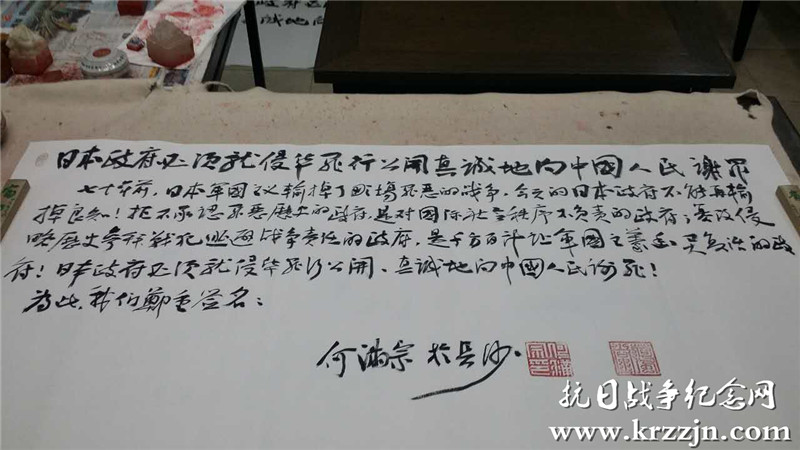 日本政府必须就侵华罪行公開真誠地向中國人民謝罪
七十年前，日本军國主义輸掉了那場罪恶的战争，今天的日本政府不能再輸
掉良知！拒不承認罪恶歷史的政府，是对國际社会秩序不負责的政府；篡改侵
略歷史参拜戰犯逃避战争责任的政府，是千方百计让军國主義 灵 的政
府！日本政府必须就侵华罪行公開、真誠地向中國人民谢罪！
为此，我们鄭重签名：
何满宗 於长沙
抗日战争纪念网
www.krzzjn.com